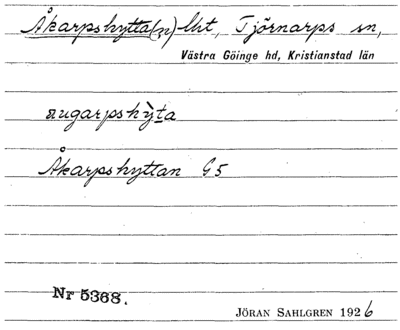 Åkarpshytta(n) lht, Tjörnarps sn,
Västra Göinge hd, Kristianstad län
augarpshỳta
Åkarpshyttan G5
Nr 5368.
JÖRAN SAHLGREN 1926